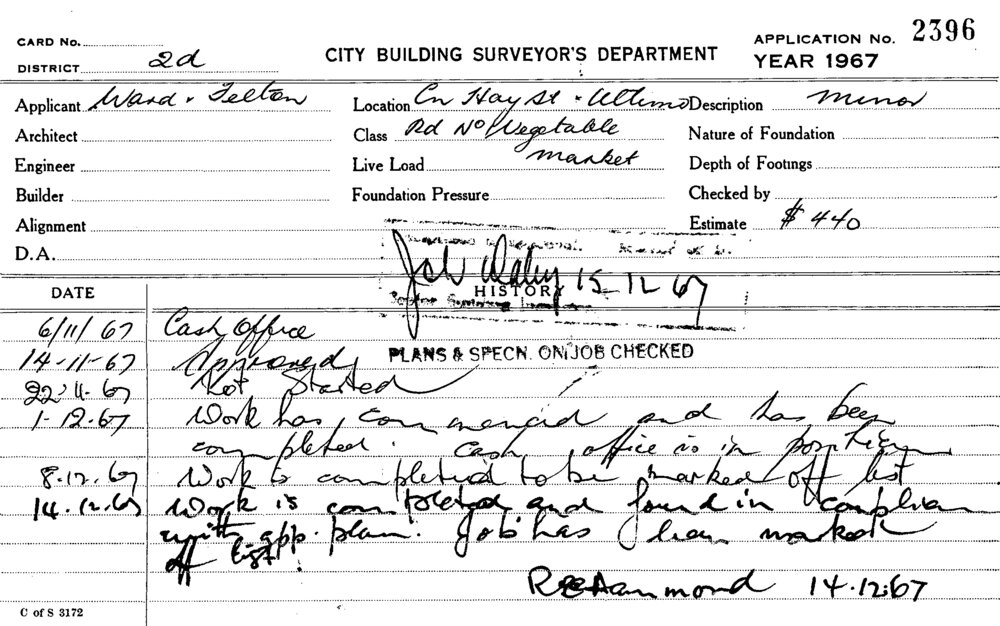 CARD No.
DISTRICT 2d
CITY BUILDING SURVEYOR'S DEPARTMENT
APPLICATION No. 2396
YEAR 1967
Applicant Ward & Felton
Location Cn Hay St & Ultimo
Description minor
Architect
Class Rd No Vegetable
Nature of Foundation
Engineer
Live Load market
Depth of Footings
Builder
Foundation Pressure
Checked by
Alignment
Estimate $ 440
D.A.
15-12-67
DATE
HISTORY
PLANS & SPECN. ON JOB CHECKED
6/11/67 Cash Office
14-11-67 Approved
22.11.67 Not Started
1-12.67 Work has commenced and has been
completed. Cash office is in position
8.12.67 Work is completed to be marked off list.
14.12.67 Work is completed and found in complian
with app. plan. Job has been marked
off list.
R E Hammond 14.12.67
C of S 3172